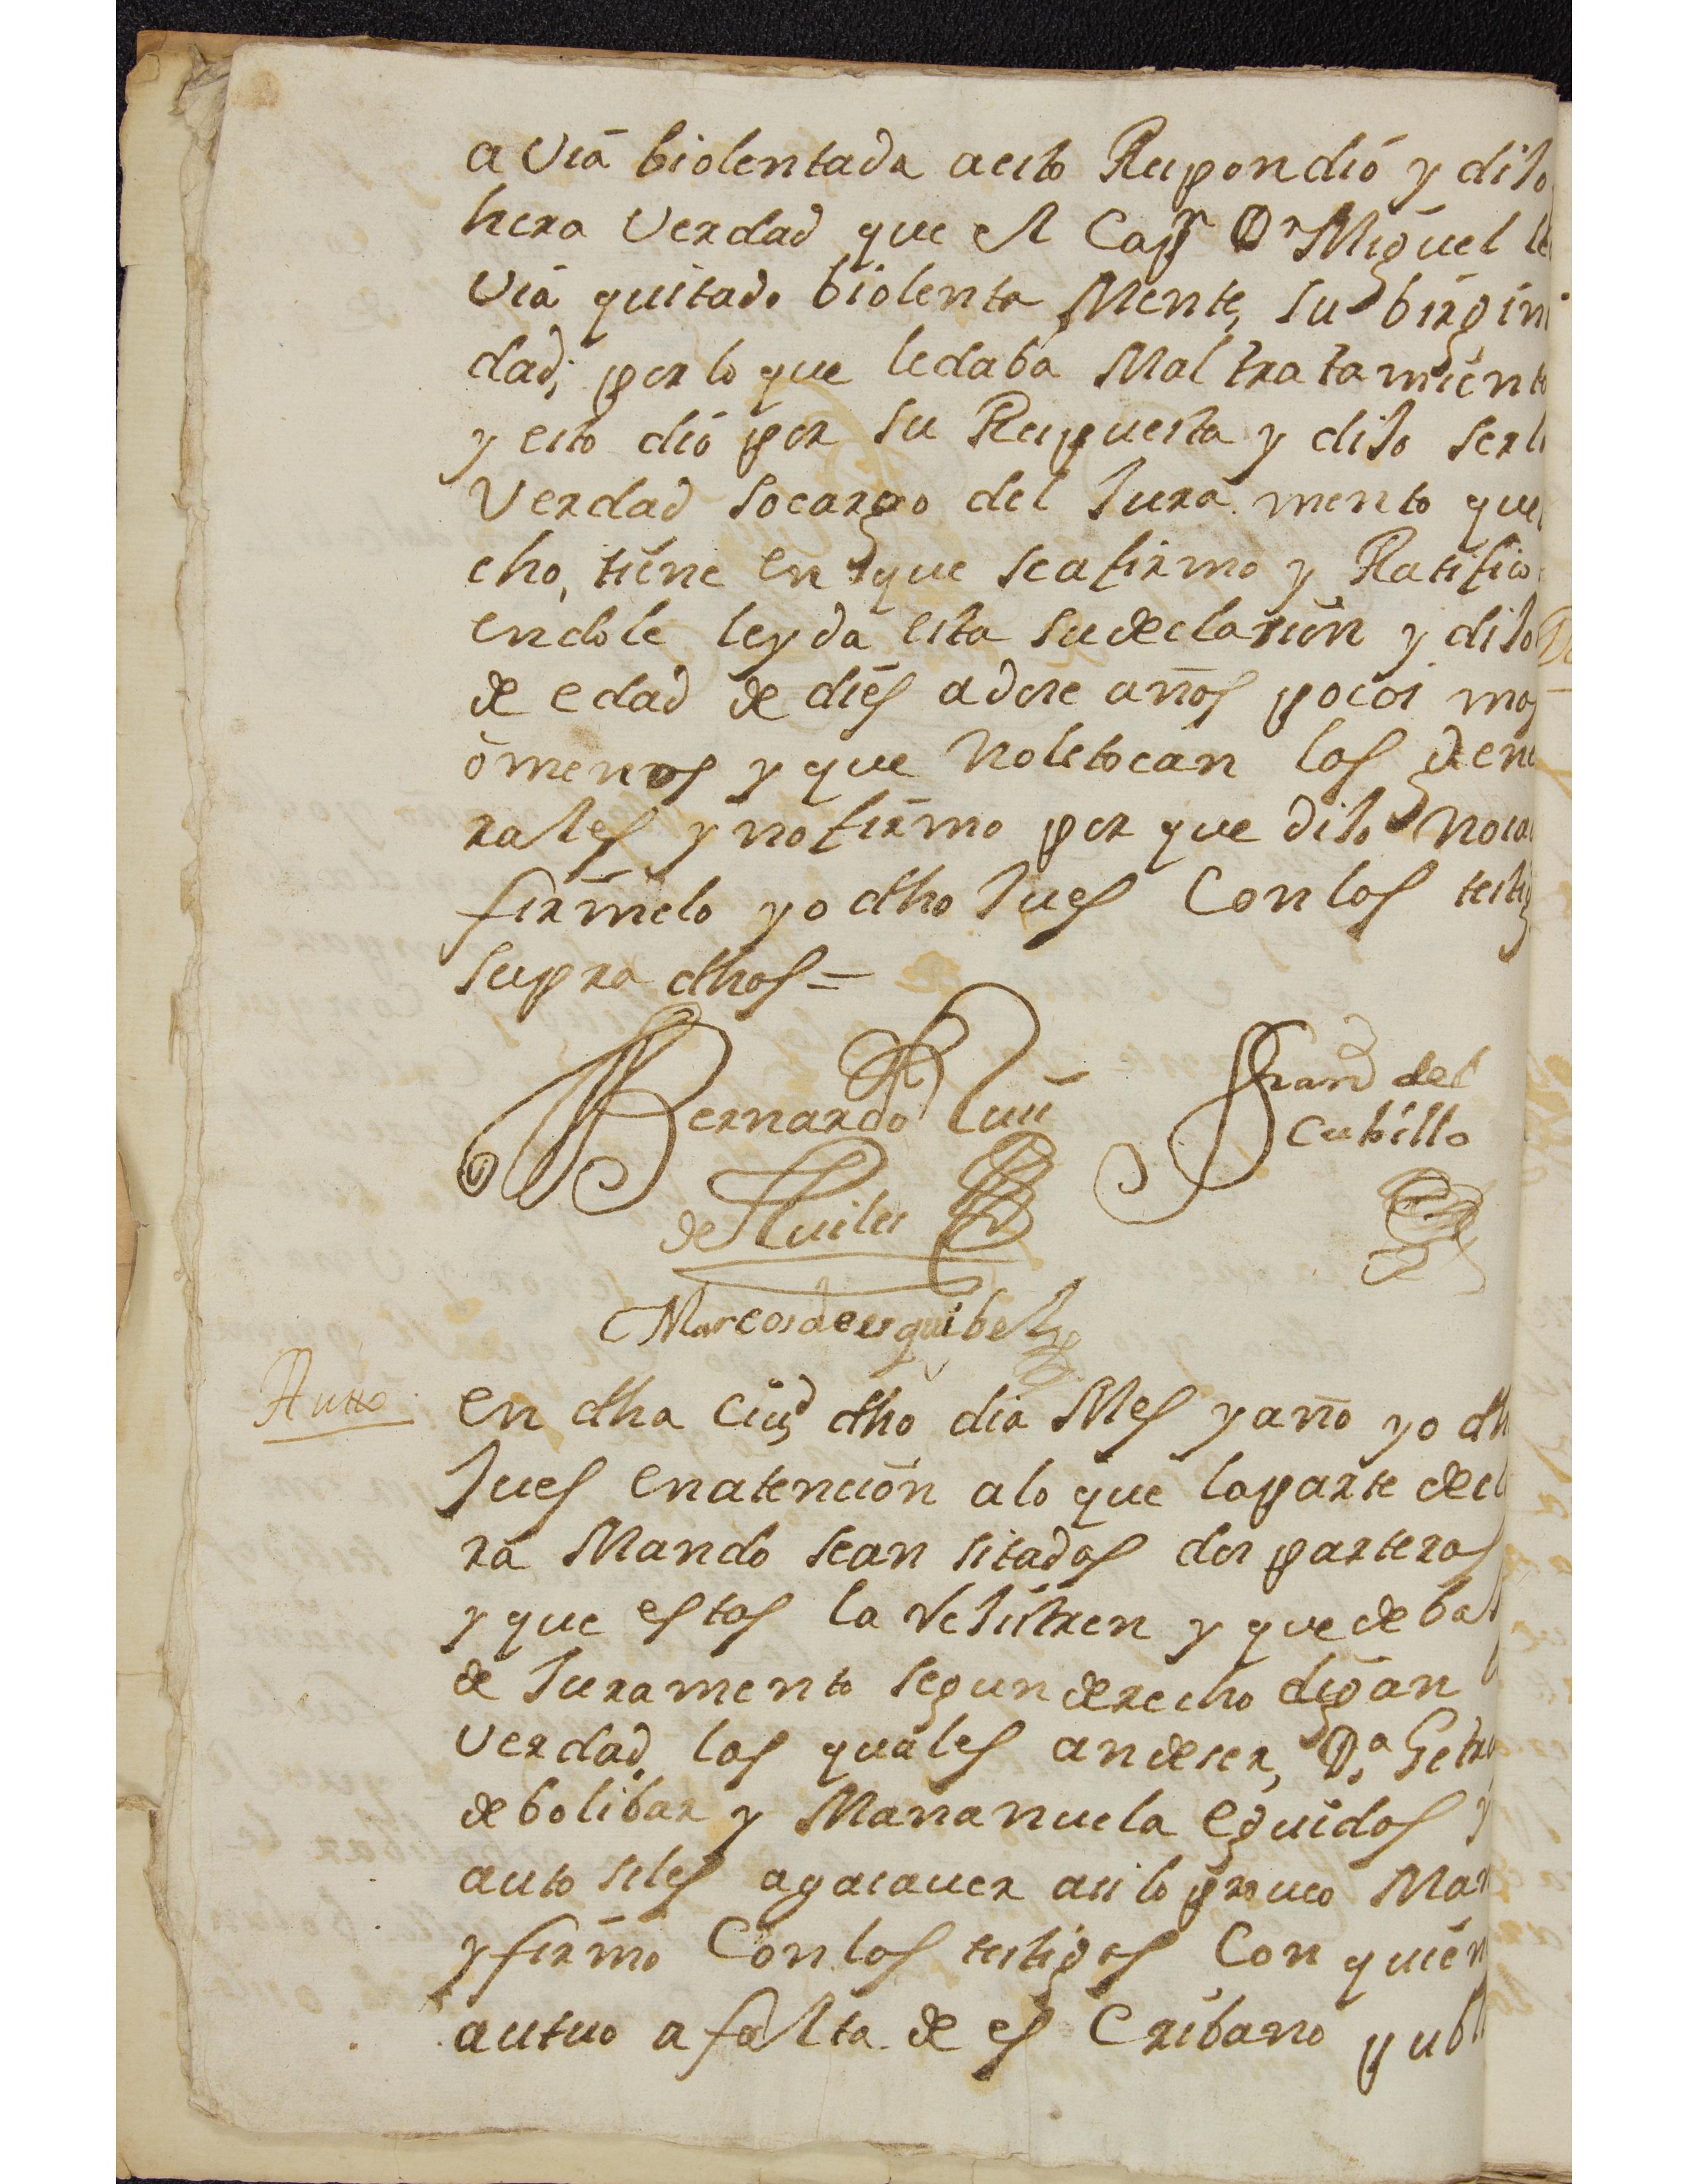 a Via biolentada aesto Respondió y dijo
hera Verdad que el Capp.n Dn Miguel le
Via quitado biolenta Mente, su birgini
dad; por lo que ledaba Mal tratamiento
y esto dió por su Respuesta y dijo serlo
Verdad socargo del Jura mento que
cho, tiene en que seafirmo y Ratifico
endole leyda esta sudeclarión y dijo
de edad de dies adose años pocos mas
ómenos y que noletocan las Gene
rales y nofirmo por que dijo no
firmelo yo dho Jues Con los testig
supra dhos =
Bernardo Ruis
de Auiles
Fran.co del
Cubillo
Marcos de esquibel
Autto
en dha Ciud dho dia Mes y año yo dh
Jues enatención alo que laparte decl
ra Mando sean sitadas dos parteras
y que estas la Rejistren y que debaj
de Juramento segun derecho digan
Verdad, las quales andeser, D.a Getru
de bolibar y Mananuela eguidos y
auto seles agasauer asi lo proueo Man
y firmo Con los testigos Con quien
autuo afalta de es Cribano publ